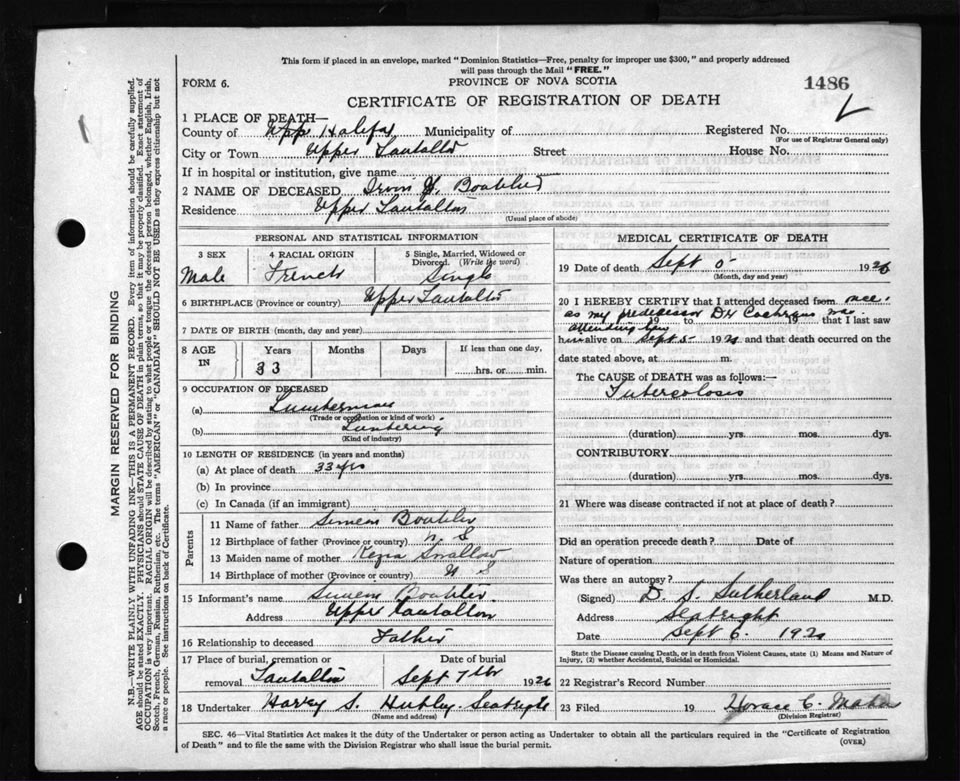 This form if placed in an envelope, marked "Dominion Statistics—Free, penalty for improper use $300," and properly addressed
will pass through the Mail "FREE."
FORM 6.
PROVINCE OF NOVA SCOTIA
1486
CERTIFICATE OF REGISTRATION OF DEATH
1 PLACE OF DEATH—
County of Upp. Halifax Municipality of Registered No.
(For use of Registrar General only)
City or Town Upper Tantallon Street House No.
If in hospital or institution, give name
2 NAME OF DECEASED Irvin Boutilier
Residence Upper Tantallon
(Usual place of abode)
PERSONAL AND STATISTICAL INFORMATION
3 SEX
Male
4 RACIAL ORIGIN
French
5 Single, Married, Widowed or
Divorced. (Write the word)
Single
6 BIRTHPLACE (Province or country) Upper Tantallon
7 DATE OF BIRTH (month, day and year)
8 AGE
IN
Years
33
Months
Days
If less than one day,
hrs. or min.
9 OCCUPATION OF DECEASED
(a) Lumberman
(Trade or occupation or kind of work)
(b) Lumbering
(Kind of industry)
10 LENGTH OF RESIDENCE (in years and months)
(a) At place of death 33 yrs
(b) In province
(c) In Canada (if an immigrant)
Parents
11 Name of father Simeon Boutilier
12 Birthplace of father (Province or country) N S
13 Maiden name of mother Kezia Swallow
14 Birthplace of mother (Province or country) N S
15 Informant's name Simeon Boutilier
Address Upper Tantallon
16 Relationship to deceased Father
17 Place of burial, cremation or
removal Tantallon
Date of burial
Sept 7th 1926
18 Undertaker Harry S. Hubley. Seabright
(Name and address)
MEDICAL CERTIFICATE OF DEATH
19 Date of death Sept 5 1926
(Month, day and year)
20 I HEREBY CERTIFY that I attended deceased from once.
as my predecessor Dr Cochrans was 19 to 19 that I last saw
attending him
him alive on Sept 5 192 and that death occurred on the
date stated above, at m.
The CAUSE of DEATH was as follows:—
Tuberculosis
(duration) yrs. mos. dys.
CONTRIBUTORY
(duration) yrs. mos. dys.
21 Where was disease contracted if not at place of death?
Did an operation precede death? Date of
Nature of operation
Was there an autopsy?
(Signed) D. S. Sutherland M.D.
Address Seabright
Date Sept 6. 192
State the Disease causing Death, or in death from Violent Causes, state (1) Means and Nature of
Injury, (2) whether Accidental, Suicidal or Homicidal.
22 Registrar's Record Number
23 Filed 19 Horace C.
(Division Registrar)
SEC. 46—Vital Statistics Act makes it the duty of the Undertaker or person acting as Undertaker to obtain all the particulars required in the "Certificate of Registration
of Death" and to file the same with the Division Registrar who shall issue the burial permit.
(OVER)
MARGIN RESERVED FOR BINDING
N.B.—WRITE PLAINLY, WITH UNFADING INK—THIS IS A PERMANENT RECORD. Every item of information should be carefully supplied.
AGE should be stated EXACTLY. PHYSICIANS should STATE CAUSE OF DEATH in plain terms, so that it may be properly classified. Exact statement of
OCCUPATION is very important. RACIAL ORIGIN will be described by stating to what people or tongue the deceased person belonged, whether English, Irish,
Scotch, French, German, Russian, Ruthenian, etc. The terms "AMERICAN" or "CANADIAN" SHOULD NOT BE USED as they express citizenship but not
a race or people. See instructions on back of Certificate.